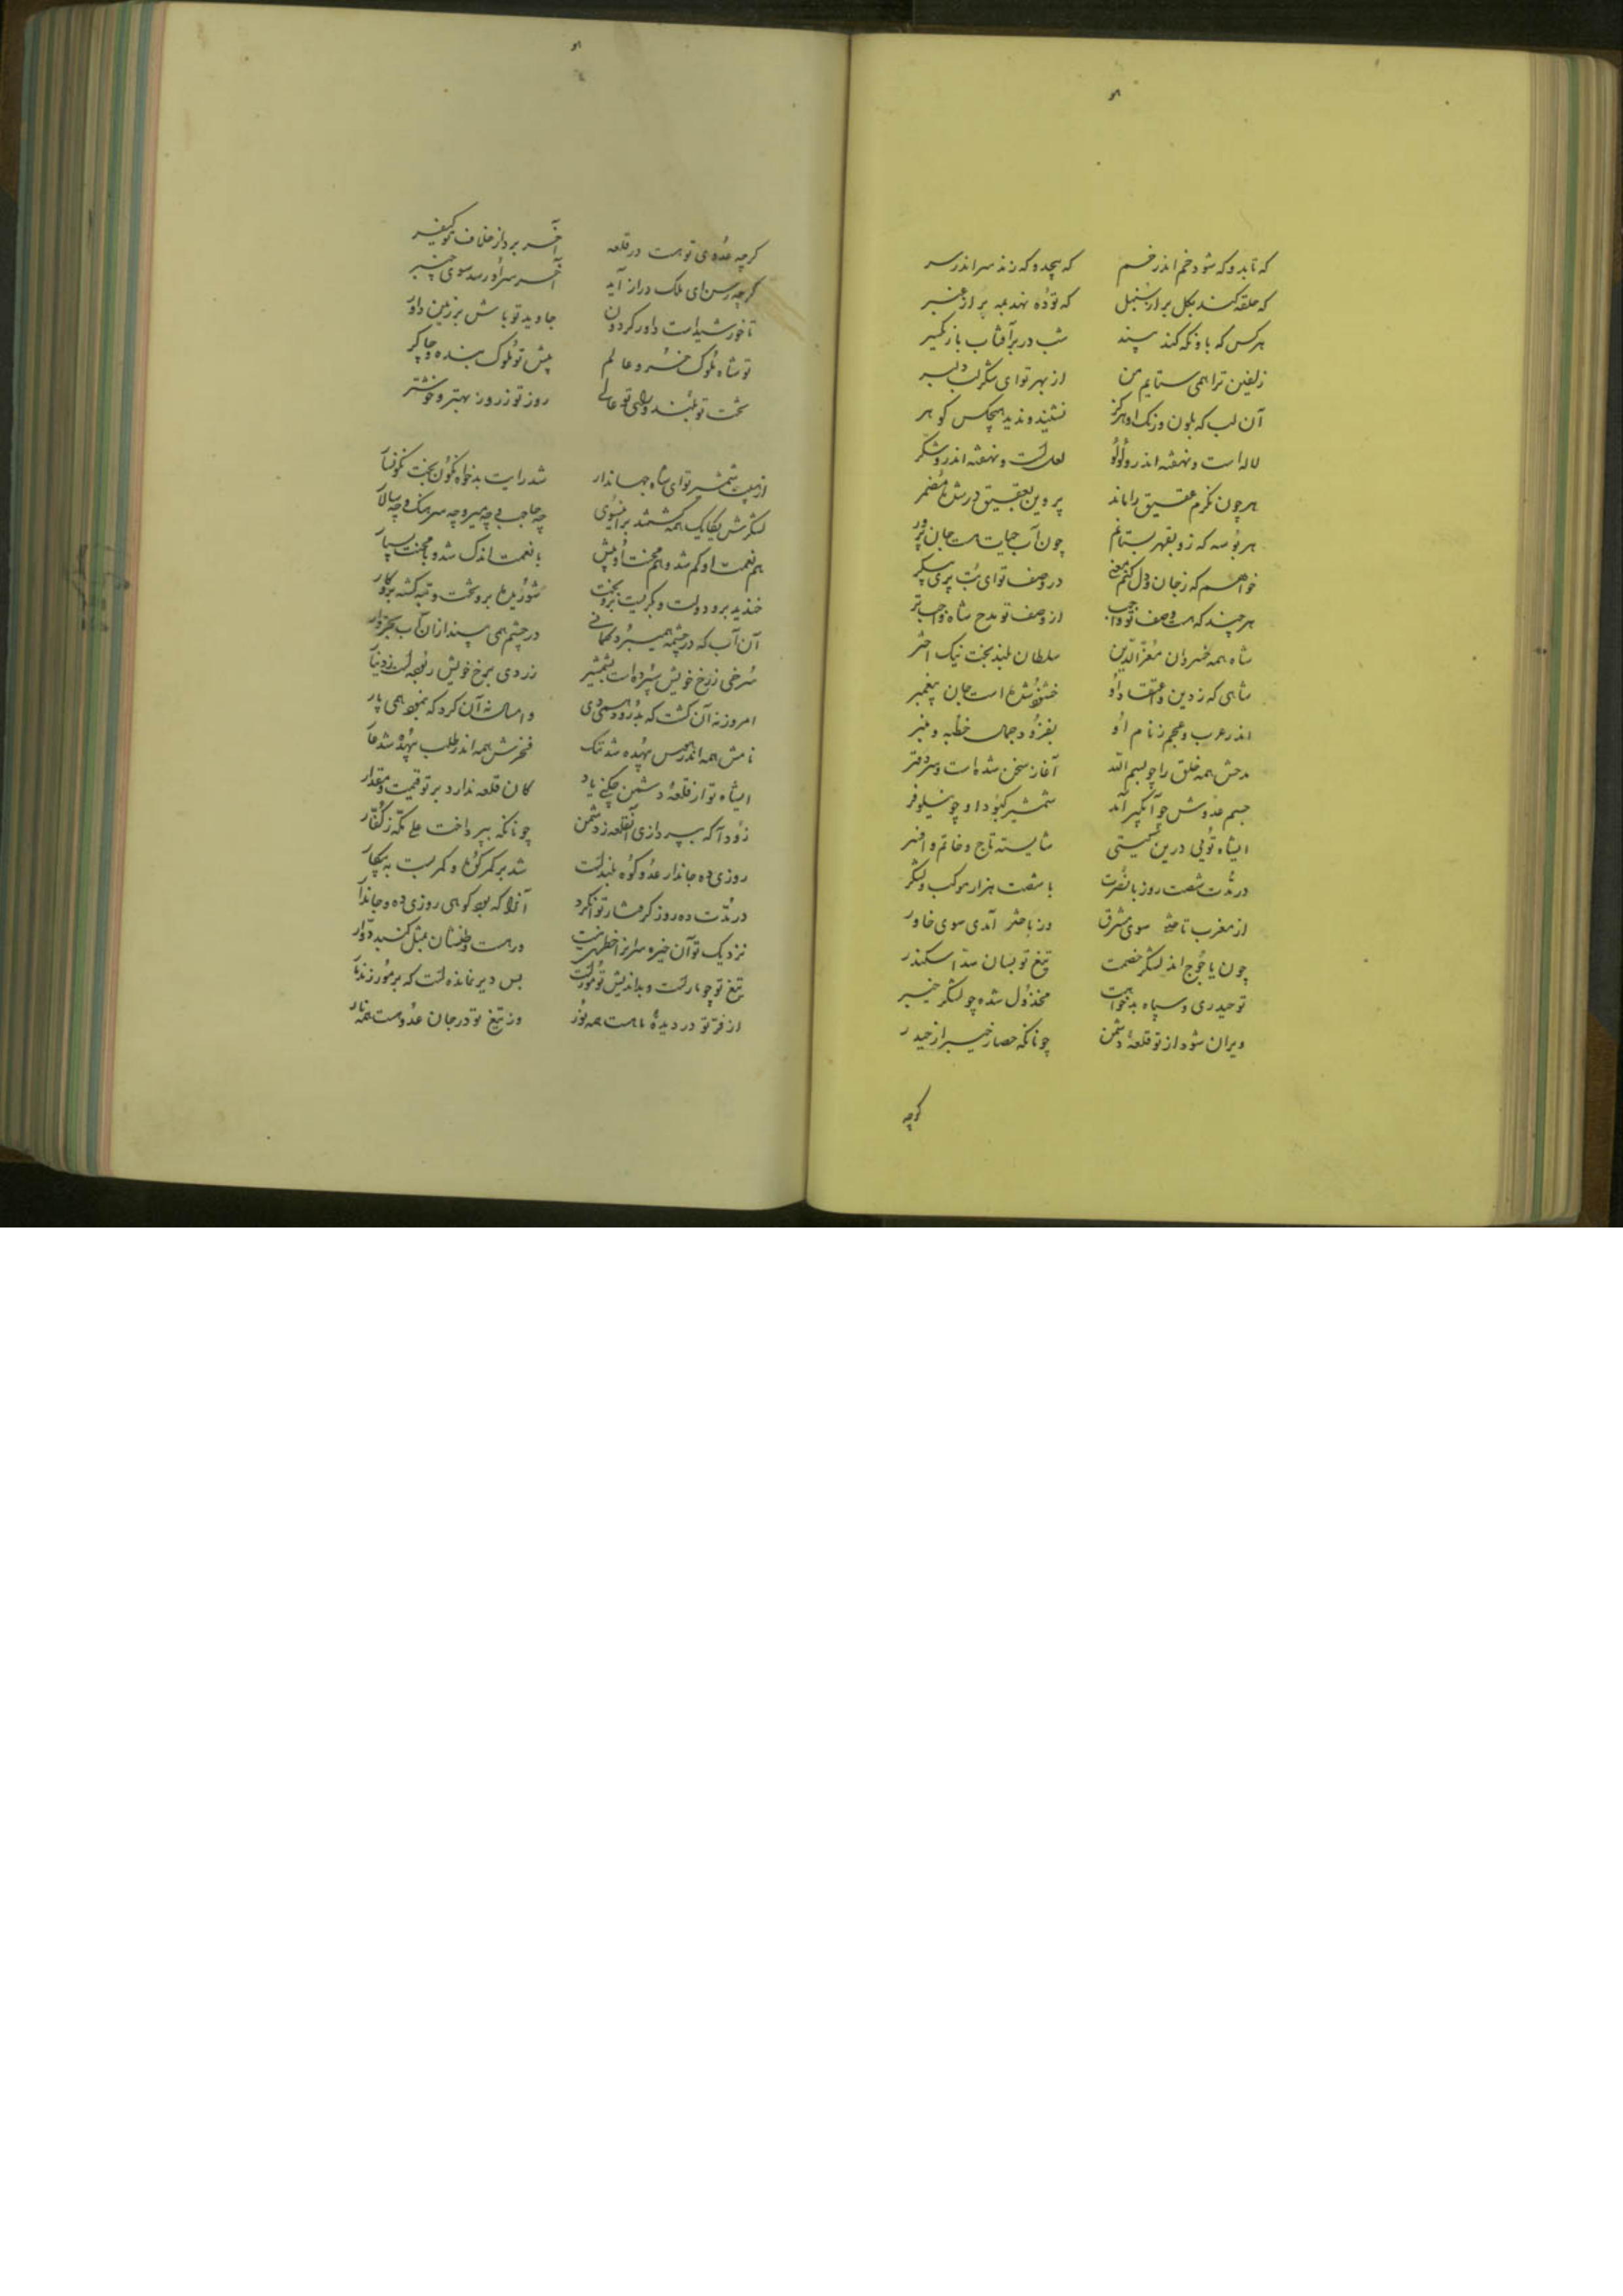 که تابد و که شود خم اندر خم که پیچد و که زند سر اندر سر
که حلقه کند بگل بر از سنبل که توده نهد بمه بر از عنبر
هرکس که باو نگه کند بیند شب در بر آفتاب بازگیر
زلفین ترا همی ستایم من از بهر تو ای شکر لب دلبر
آن لب که بلون و رنک او هرکز نشنید و ندید هیچکس کوهر
لاله است و نهفته اندرو لولو لعلست و نهفته اندرو شکر
هر چون نکرم عقیق را ماند پروین بعقیق درش مضمر
هر بوسه که زو بقهر بستانم چون آب حیات هست جان پرور
خواهم که ز جان و دل کنم معنی در وصف تو ای بت پری پیکر
هر چند که هست وصف تو واجب از وصف تو مدح شاه واجب تر
شاه همه خسروان معزالدین سلطان بلند بخت نیک اختر
شاهی که ز دین و اعتقاد او خشنود شده است جان پیغمبر
اندر عرب و عجم ز نام او بفزود جمال خطبه و منبر
مدحش همه خلق را چو بسم الله آغاز سخن شده است و سر دفتر
جسم عدوش چو آبگیر آمد شمشیر کبود او چو نیلوفر
ایشاه تویی درین گیتی شایسته تاج و خاتم و افسر
در مدت شصت روز با نصرت با شصت هزار موکب و لشکر
از مغرب تاختی سوی مشرق وز باختر آمدی سوی خاور
چون یاجوج اند لشکر خصمت تیغ تو بسان سد اسکندر
تو حیدری و سپاه بدخواهت مخذول شده چو لشکر خیبر
ویران شود از تو قلعهٔ دشمن چونانکه حصار خیبر از حیدر
کرچه
کرچه عدوی تو هست در قلعه آخر برد از خلاف تو کیفر
کرچه رسن ای ملک دراز آید آخر سر او رسد سوی چنبر
تا خورشید است داور کردون جاوید تو باش بر زمین داور
تو شاه ملوک خسرو عالم پیش تو ملوک بنده و چاکر
بخت تو بلند و رای تو عالی روز تو ز روز بهتر و خوشتر
از هیبت شمشیر تو ای شاه جهاندار شد رایت بدخواه نکون بخت نکونسار
لشکرش یکایک همه کشتند برانسوی چه حاجب و چه میر و چه سرهنک و چه سالار
هم نعمت او کم شد و هم محنت او بیش با نعمت اندک شد و با محنت بسیار
خندید برو دولت و بکریست برو بخت شوریده برو بخت و تبه کشته برو کار
آن آب که در چشمه همیبرد در چشم همی بیند ازان آب
سرخی ز رخ خویش سپرده است بشمشیر زردی برخ خویش ربوده است ز دینار
امروز نه آن کشت که بد روز همی دی و امسال نه آن کرد که بنمود همی پار
نامش همه اندر هوس بیهده شد ننک فخرش همه اندر طلب بیهده شد عار
ایشاه تو از قلعهٔ دشمن چکنی یاد کان قلعه ندارد بر تو قیمت و مقدار
زود آ که بپردازی آنقلعه ز دشمن چونانکه بپرداخت علی مکه ز کفار
روزی ده جاندار عدو کوه بلندست شد بر کمر کوه و کمر بست به پیکار
در مدت ده روز کرفتار تو کردد آنرا که بود کوهی روزی ده و جاندار
نزدیک تو آن خیره سرانرا خطری نیست ور هست وطنشان بمثل کنبد دوار
تیغ تو چو مارست و بداندیش تو مورست بس دیر نمانده است که بر مور زند مار
از فر تو در دیدهٔ ما هست همه نور وز تیغ تو در جان عدو هست همه نار